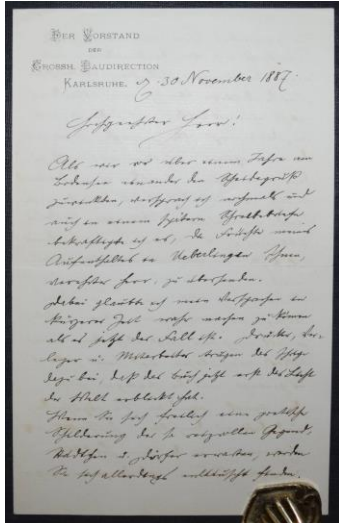 DER VORSTAND
DER
GROSSH. BAUDIRECTION
KARLSRUHE, d. 30 November 1887.
Hochgeehrter Herr!
Als wir vor über einem Jahre am
Bodensee einander den Scheidegruß
zuwinkten, versprach ich nochmals und
auch in einem spätern Schreibebriefe
bekräftigte ich es, die Früchte meines
Aufenthaltes in Ueberlingen Ihnen,
verehrter Herr, zu übersenden.
Dabei glaubte ich mein Versprechen in
kürzerer Zeit wahr machen zu können
als es jetzt der Fall ist. Drucker, Ver-
leger u. Mitarbeiter trugen die Schuld
dazu bei, daß das Buch jetzt erst das Licht
der Welt erblickt hat.
Wenn Sie sich freilich eine poetische
Schilderung der so reizvollen Gegend,
Städtchen u. Dörfer erwarten, werden
Sie sich allerdings enttäuscht finden.